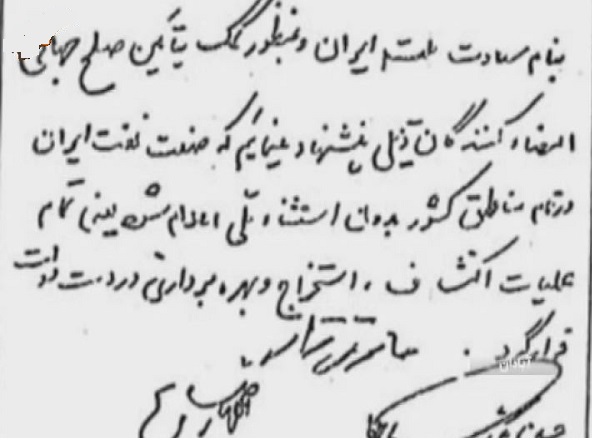 بنام سعادت ملت ایران و بمنظور کمک بتأمین صلح جهانی
امضاء کنندگان ذیل پیشنهاد مینمایم که صنعت نفت ایران
در تمام مناطق کشور بدون استثناء ملی اعلام شود یعنی تمام
عملیات اکتشاف ، استخراج و بهره برداری در دست دولت
قرار گیرد .